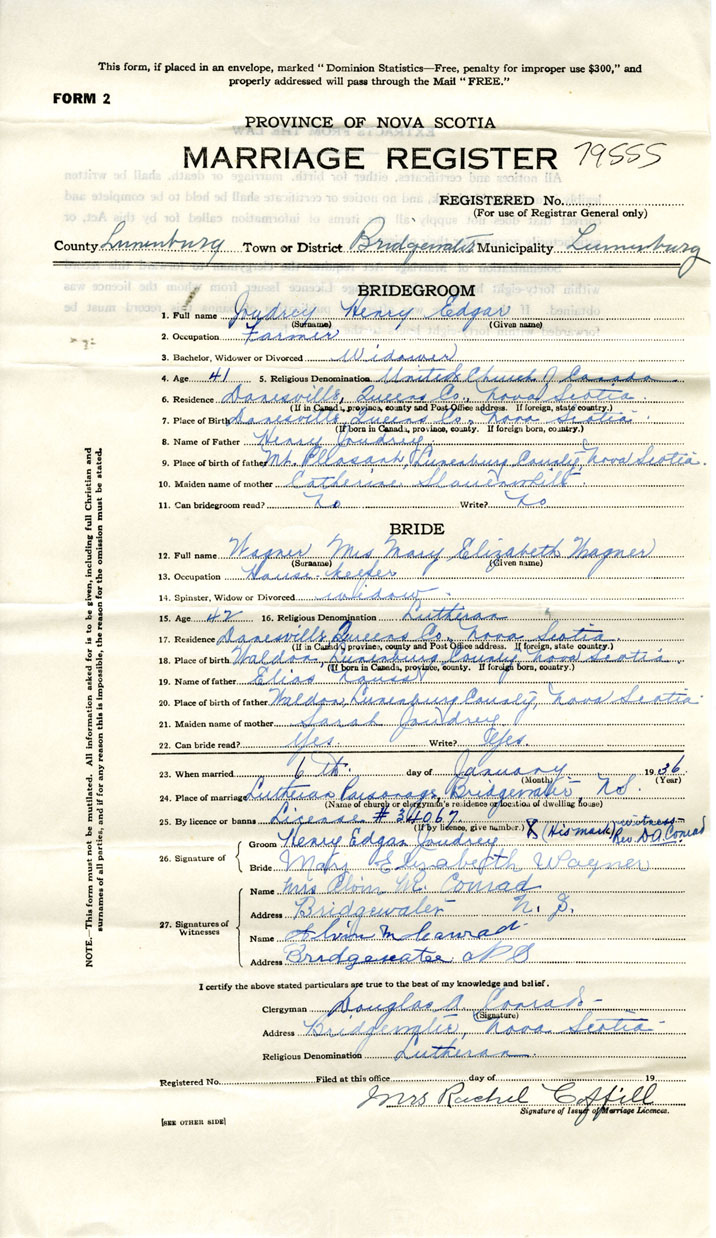 This form, if placed in an envelope, marked "Dominion Statistics—Free, penalty for improper use $300," and
properly addressed will pass through the Mail "FREE."
FORM 2
PROVINCE OF NOVA SCOTIA
MARRIAGE REGISTER 79555
REGISTERED No.
(For use of Registrar General only)
County Lunenburg Town or District Bridgewater Municipality Lunenburg
BRIDEGROOM
1. Full name Joudrey Henry Edgar
(Surname) (Given name)
2. Occupation Farmer
3. Bachelor, Widower or Divorced Widower
4. Age 41 5. Religious Denomination United Church of Canada
6. Residence Danesville, Queens Co., Nova Scotia
(If in Canada, province, county and Post Office address. If foreign, state country.)
7. Place of Birth Danesville, Queens Co., Nova Scotia.
(If born in Canada, province, county. If foreign born, country.)
8. Name of Father Henry Joudrey.
9. Place of birth of father Mt. Pleasant, Lunenburg County, Nova Scotia.
10. Maiden name of mother Catherine
11. Can bridegroom read? No Write? No
BRIDE
12. Full name Wagner Mrs Mary Elizabeth Wagner
(Surname) (Given name)
13. Occupation House-keeper
14. Spinster, Widow or Divorced widow.
15. Age 42 16. Religious Denomination Lutheran
17. Residence Danesville, Queens Co., Nova Scotia.
(If in Canada, province, county and Post Office address. If foreign, state country.)
18. Place of birth Waldon, Lunenburg County, Nova Scotia.
(If born in Canada, province, county. If foreign born, country.)
19. Name of father Elias
20. Place of birth of father Waldon, Lunenburg County, Nova Scotia.
21. Maiden name of mother Sarah Joudrey
22. Can bride read? Yes. Write? Yes.
23. When married 6th. day of January 1936
(Month) (Year)
24. Place of marriage Lutheran Parsonage, Bridgewater, N.S.
(Name of church or clergyman's residence or location of dwelling house)
25. By licence or banns License #34067.
(If by licence, give number.) X (His mark) witness- Rev. D.A. Conrad
26. Signature of
Groom Henry Edgar Joudrey
Bride Mary Elizabeth Wagner
27. Signatures of Witnesses
Name Mrs Alvin M. Conrad
Address Bridgewater N. S.
Name Alvin M Conrad.
Address Bridgewater N S
I certify the above stated particulars are true to the best of my knowledge and belief.
Clergyman Douglas A. Conrad-
(Signature)
Address Bridgewater, Nova Scotia
Religious Denomination Lutheran.
Registered No. Filed at this office day of 19
Mrs Rachel Coffill
Signature of Issuer of Marriage Licences.
[SEE OTHER SIDE]
NOTE.—This form must not be mutilated. All information asked for is to be given, including full Christian and
surnames of all parties, and if for any reason this is impossible, the reason for the omission must be stated.